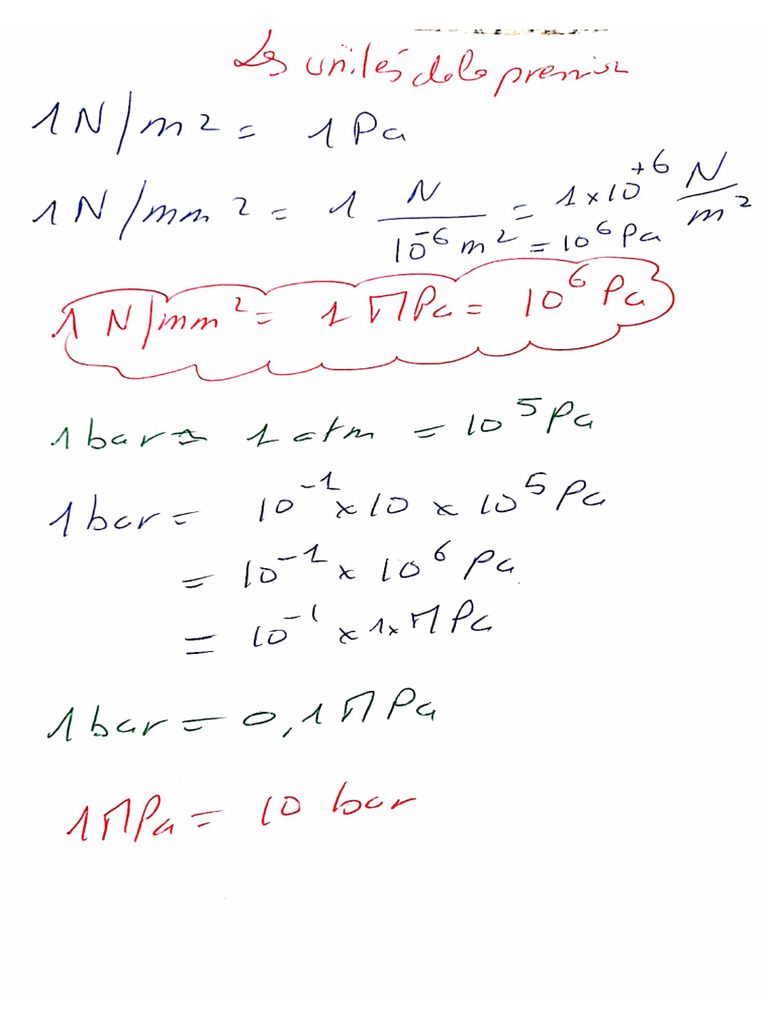 Les unités de la pression
1N/m² = 1Pa
1N/mm² = 1 N/10⁻⁶m² = 1×10⁺⁶ N/m²
= 10⁶Pa
1 N/mm² = 1 MPa = 10⁶ Pa
1bar = 1 atm = 10⁵Pa
1bar = 10⁻¹×10×10⁵Pa
= 10⁻¹×10⁶Pa
= 10⁻¹×1×MPa
1bar = 0,1MPa
1MPa = 10 bar